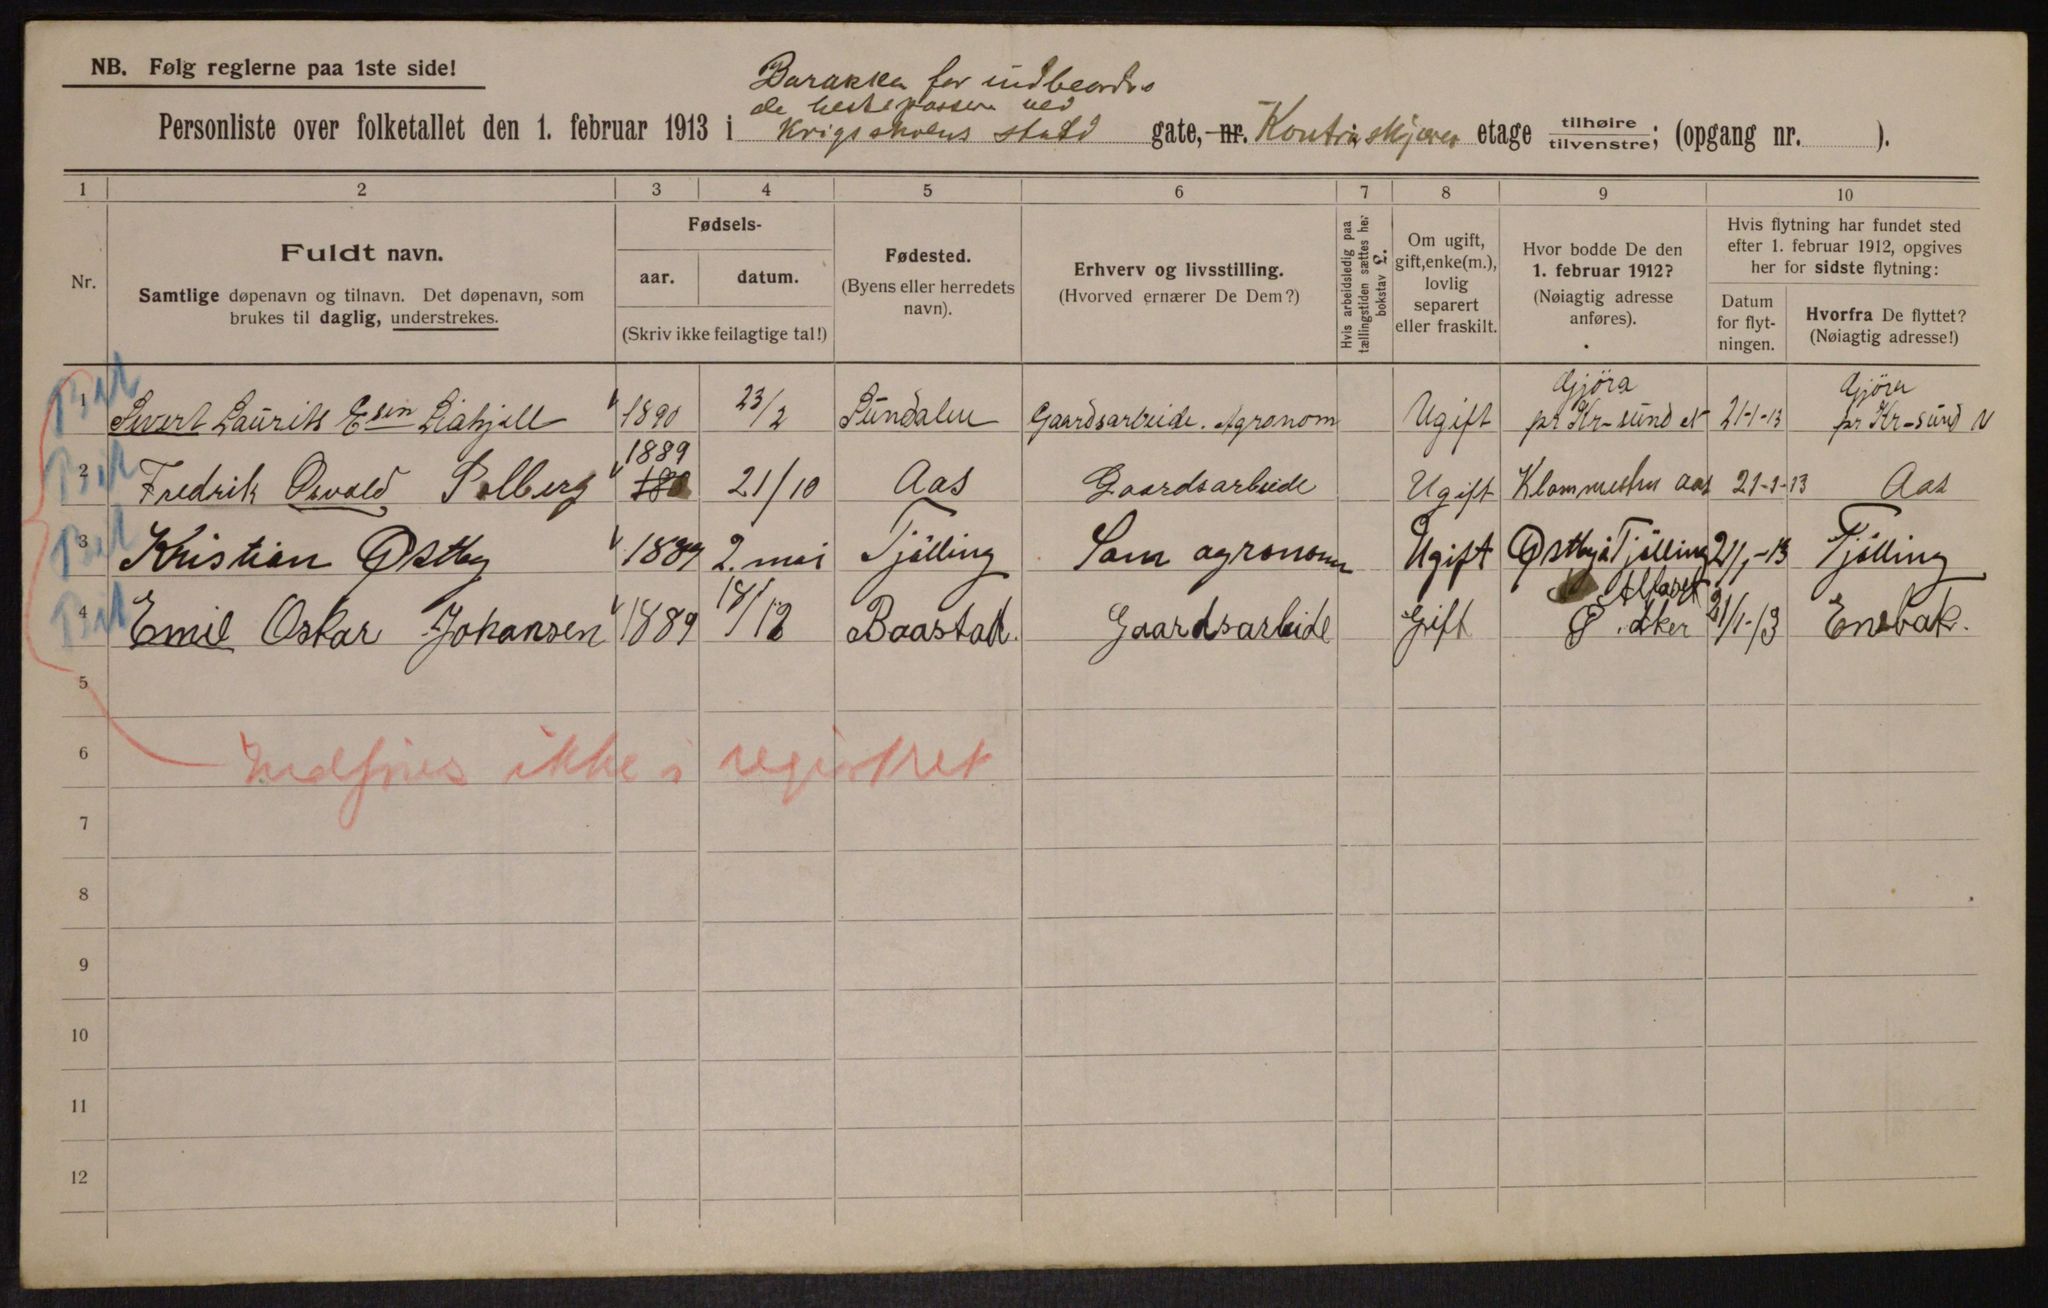 NB. Følg reglerne paa 1ste side!
Barakken for indbeordre
de hestepassere ved
Personliste over folketallet den 1. februar 1913 i Krigsskolens stald gate, nr. Kontraskjæret etage tilhøire tilvenstre; (opgang nr. ).
1 2 3 4 5 6 7 8 9 10
Nr.
Fuldt navn.
Samtlige døpenavn og tilnavn. Det døpenavn, som
brukes til daglig, understrekes.
Fødsels-
aar. datum.
(Skriv ikke feilagtige tal!)
Fødested.
(Byens eller herredets
navn).
Erhverv og livsstilling.
(Hvorved ernærer De Dem?)
Hvis arbeidsledig paa
tællingstiden sættes her
bokstav L.
Om ugift,
gift, enke(m.),
lovlig
separert
eller fraskilt.
Hvor bodde De den
1. februar 1912?
(Nøiagtig adresse
anføres).
Hvis flytning har fundet sted
efter 1. februar 1912, opgives
her for sidste flytning:
Datum
for flyt-
ningen.
Hvorfra De flyttet?
(Nøiagtig adresse!)
1 Sivert Laurits Esen Liahjell 1890 23/2 Sundalen Gaardsarbeide. Agronom Ugift Gjöra pr Kr-sund N 21-1-13 Gjöra pr Kr-sund N
2 Fredrik Osvald Solberg 1889 21/10 Aas Gaardsarbeide Ugift Aas 21-1-13 Aas
3 Kristian Østby 1889 2. mai Tjölling Som agronom Ugift Østby i Tjölling 21/1-13 Tjölling
4 Emil Oskar Johansen 1889 18/12 Baastad. Gaardsarbeide Gift Alfaset Ø. Aker 21/1-13 Enebak.
5
6
Indføres ikke i registret
7
8
9
10
11
12